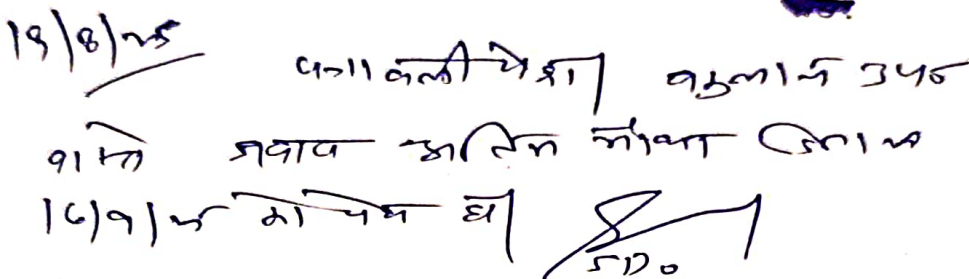 19/8/25 पत्रावली पेश। वकुलाय उप०
वास्ते जवाब अन्तिम मौका दिनांक
16/9/25 को पेश हो।
SDO